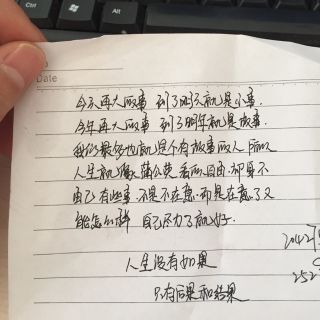 Date
今天再大的事 到了明天就是小事.
今年再大的事 到了明年就是故事.
我们最多也就是个有故事的人 所以
人生就像蒲公英 看似自由 却身不
由己 有些事 不是不在意 而是在意了又
能怎么样 自己尽力了就好.
人生没有如果
只有后果和结果
252